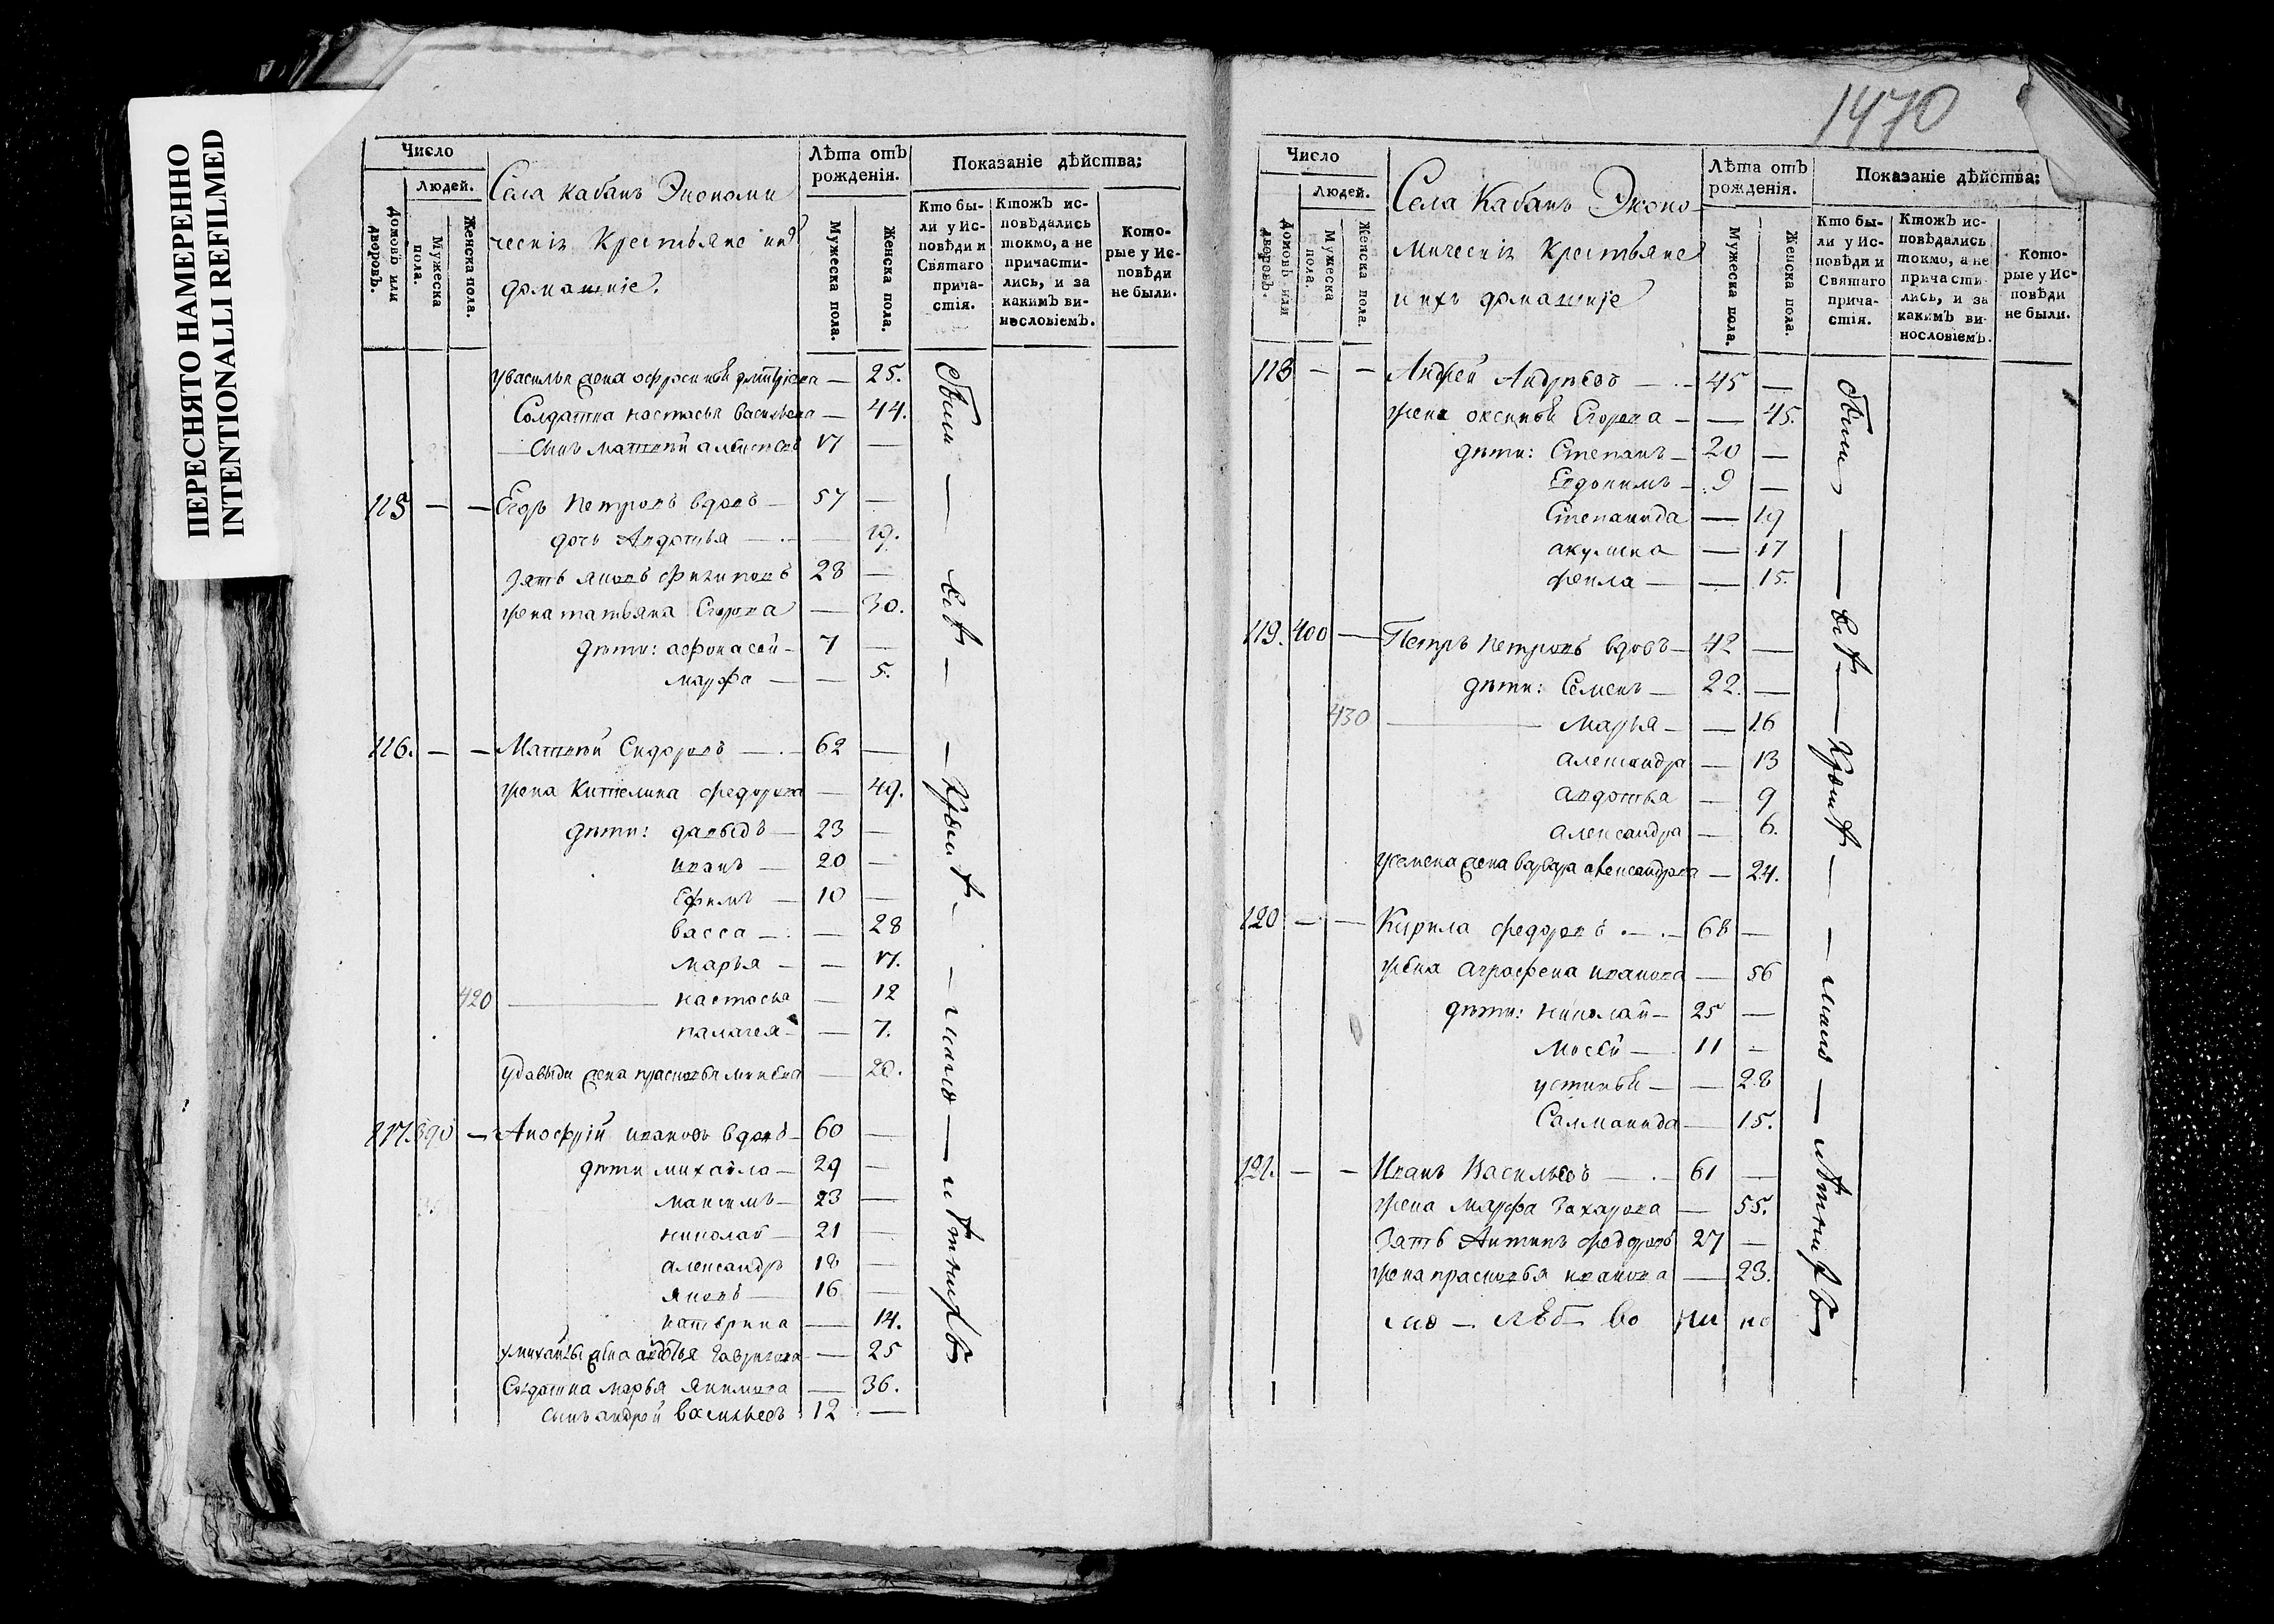 ПЕРЕСНЯТО НАМЕРЕННО
INTENTIONALLI REFILMED
1470
Число
Людей.
Домовъ или дворовъ.
Мужеска пола.
Женска пола.
Села Кабанъ Экономи
ческіе Крестьяне ихъ
домашніе.
Лѣта отъ рожденія.
Мужеска пола.
Женска пола.
Показаніе дѣйства:
Кто бы-
ли у Ис-
повѣди и
Святаго
прича-
стія.
Ктожъ ис-
повѣдались
токмо, а не
причасти-
лись, и за
какимъ ви-
нословіемъ.
Кото-
рые у Ис-
повѣди
не были.
у василья жена офросинья дмитріева — 25.
Солдатка настасья васильева — 44.
Сынъ матвѣй 17 —
115 — — Егоръ Петровъ вдовъ — 57 —
дочь Авдотья — — 19.
зять яковъ филиповъ 28 —
жена татьяна Егорова — 30.
дѣти: афонасей — 7 —
марфа — — 5.
116. — — Матвѣй Сидоровъ — 62 —
жена Кителина федорова — 49.
дѣти: давыдъ — 23 —
иванъ — 20 —
Ефимъ — 10 —
васса — — 28
марья — — 17.
420 — настасья — 12
палагея — — 7.
у давыда жена прасковья — 20.
117. 390 — Анофрій ивановъ вдовъ — 60 —
дѣти михайла — 29 —
максимъ — 23 —
николай — 21 —
александръ 18 —
яковъ — 16 —
катерина — 14.
у михайлы жена авдотья гаврилова — 25
Солдатка марья якимова — 36.
сынъ андрей васильевъ 12 —
были — всѣ — кромѣ — мало — лѣтнихъ
Число
Людей.
Домовъ или дворовъ.
Мужеска пола.
Женска пола.
Села Кабанъ Эконо-
мическіе Крестьяне
и ихъ домашніе
Лѣта отъ рожденія.
Мужеска пола.
Женска пола.
Показаніе дѣйства:
Кто бы-
ли у Ис-
повѣди и
Святаго
прича-
стія.
Ктожъ ис-
повѣдались
токмо, а не
причасти-
лись, и за
какимъ ви-
нословіемъ.
Кото-
рые у Ис-
повѣди
не были.
118 — — Андрей Андреевъ — 45 —
жена оксинья Егорова — — 45.
дѣти: Степанъ — 20 —
Евдокимъ — 9 —
Степанида — 19
акулина — 17
фекла — — 15.
119. 400 — Петръ Петровъ вдовъ — 42 —
дѣти: Семенъ — 22. —
430 — Марья — — 16
александра — 13
авдотья — 9
александра — 6.
у семена жена варвара александрова — 24.
120 — — Кирила федоровъ — 68 —
жена аграфена иванова — 56
дѣти: николай — 25 —
Мосей — 11 —
устинья — — 28
Саломанида — 15.
121. — — Иванъ Васильевъ — 61 —
жена марфа захарова — 55.
зять Антипъ федоровъ 27 —
жена прасковья иванова — 23.
были — всѣ — кромѣ — мало — лѣтнихъ